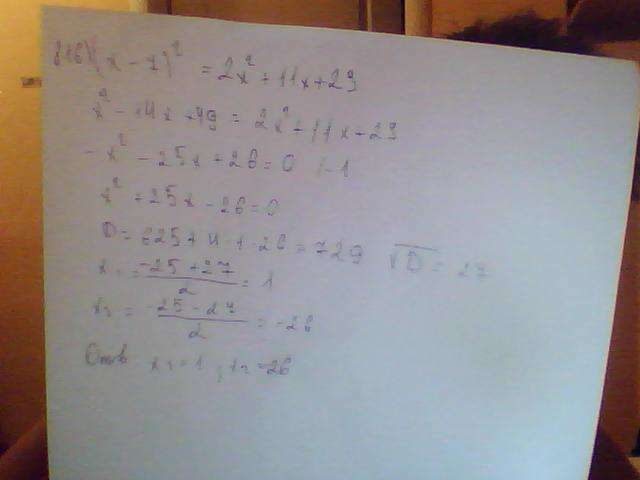 (x - 7)² = 2x² + 11x + 23
x² - 14x + 49 = 2x² + 11x + 23
- x² - 25x + 26 = 0 | -1
x² + 25x - 26 = 0
D = 625 + 4 · 1 · 26 = 729 √D = 27
x = -25 + 27 / 2 = 1
x₂ = -25 - 27 / 2 = -26
Отв x₁ = 1 , x₂ = -26